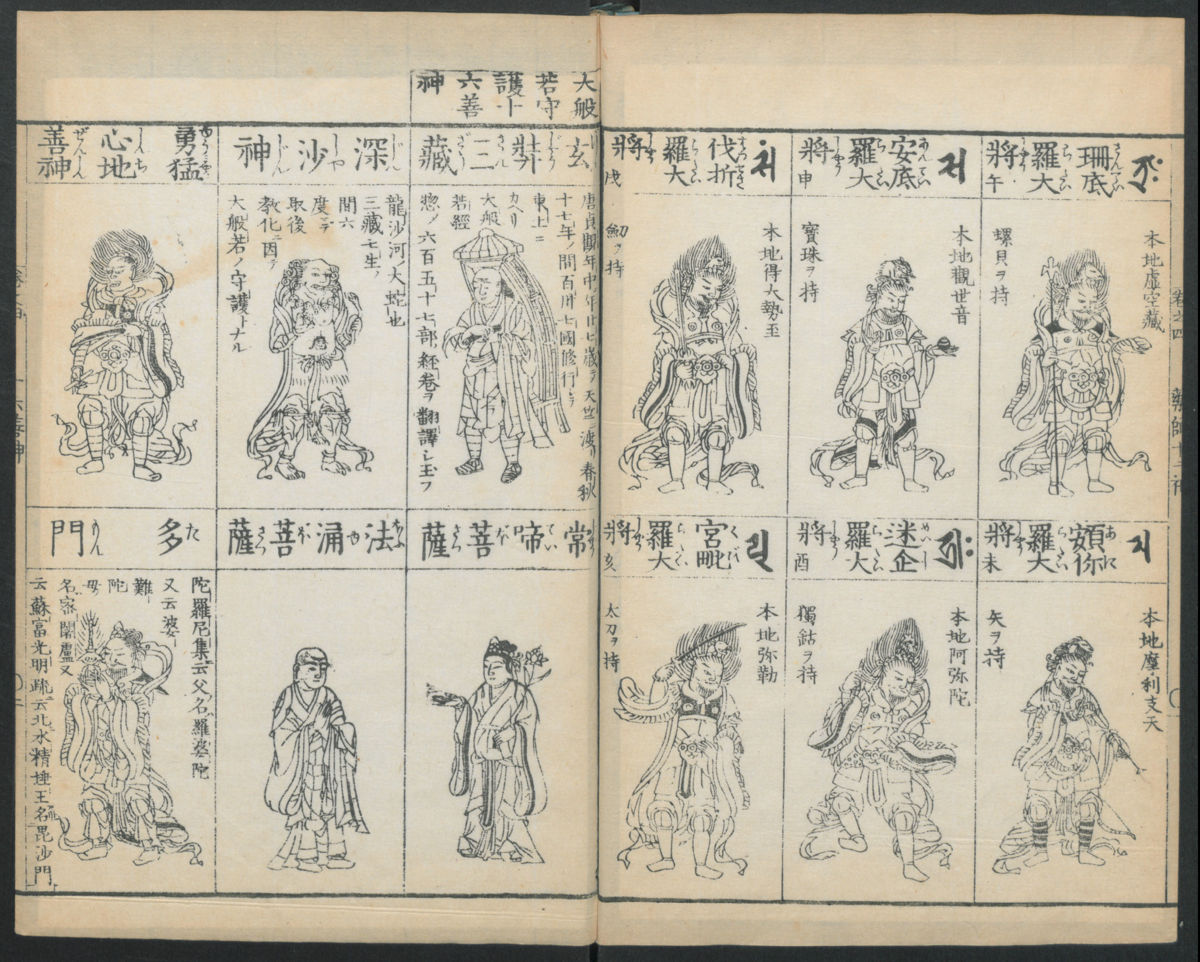 珊底羅大將 午
さんていらたいしやう
本地虚空藏
螺貝ヲ持
安底羅大將 申
あんていらたいしやう
本地觀世音
寳珠ヲ持
伐折羅大將 戌
本地得大勢至
劔ヲ持
頞儞羅大將 未
本地摩利支天
矢ヲ持
迷企羅大將 酉
本地阿弥陀
獨鈷ヲ持
宮毗羅大將 亥
本地弥勒
太刀ヲ持
大般
若守
護十
六善
神
玄奘三藏
唐貞觀年中年廿七歳ヲ天竺ニ渡リ春秋
十七年ノ間百卅七國修行
東土ニ
カヘリ
大般
若經
惣ノ六百五十七部経卷ヲ翻譯シ玉フ
深沙神
じんしやじん
龍沙河ノ大蛇也
三藏七生ノ
間六
度マテ
取後
教化ニ因テ
大般若ノ守護トナル
勇猛
心地
善神
しんち
ぜんしん
常啼菩薩
法涌菩薩
多門
たもん
陀羅尼集云父名羅婆陀
又云婆
難
陀
母
名容闍盧又
云蘇富光明疏云北水精埵王名毘沙門